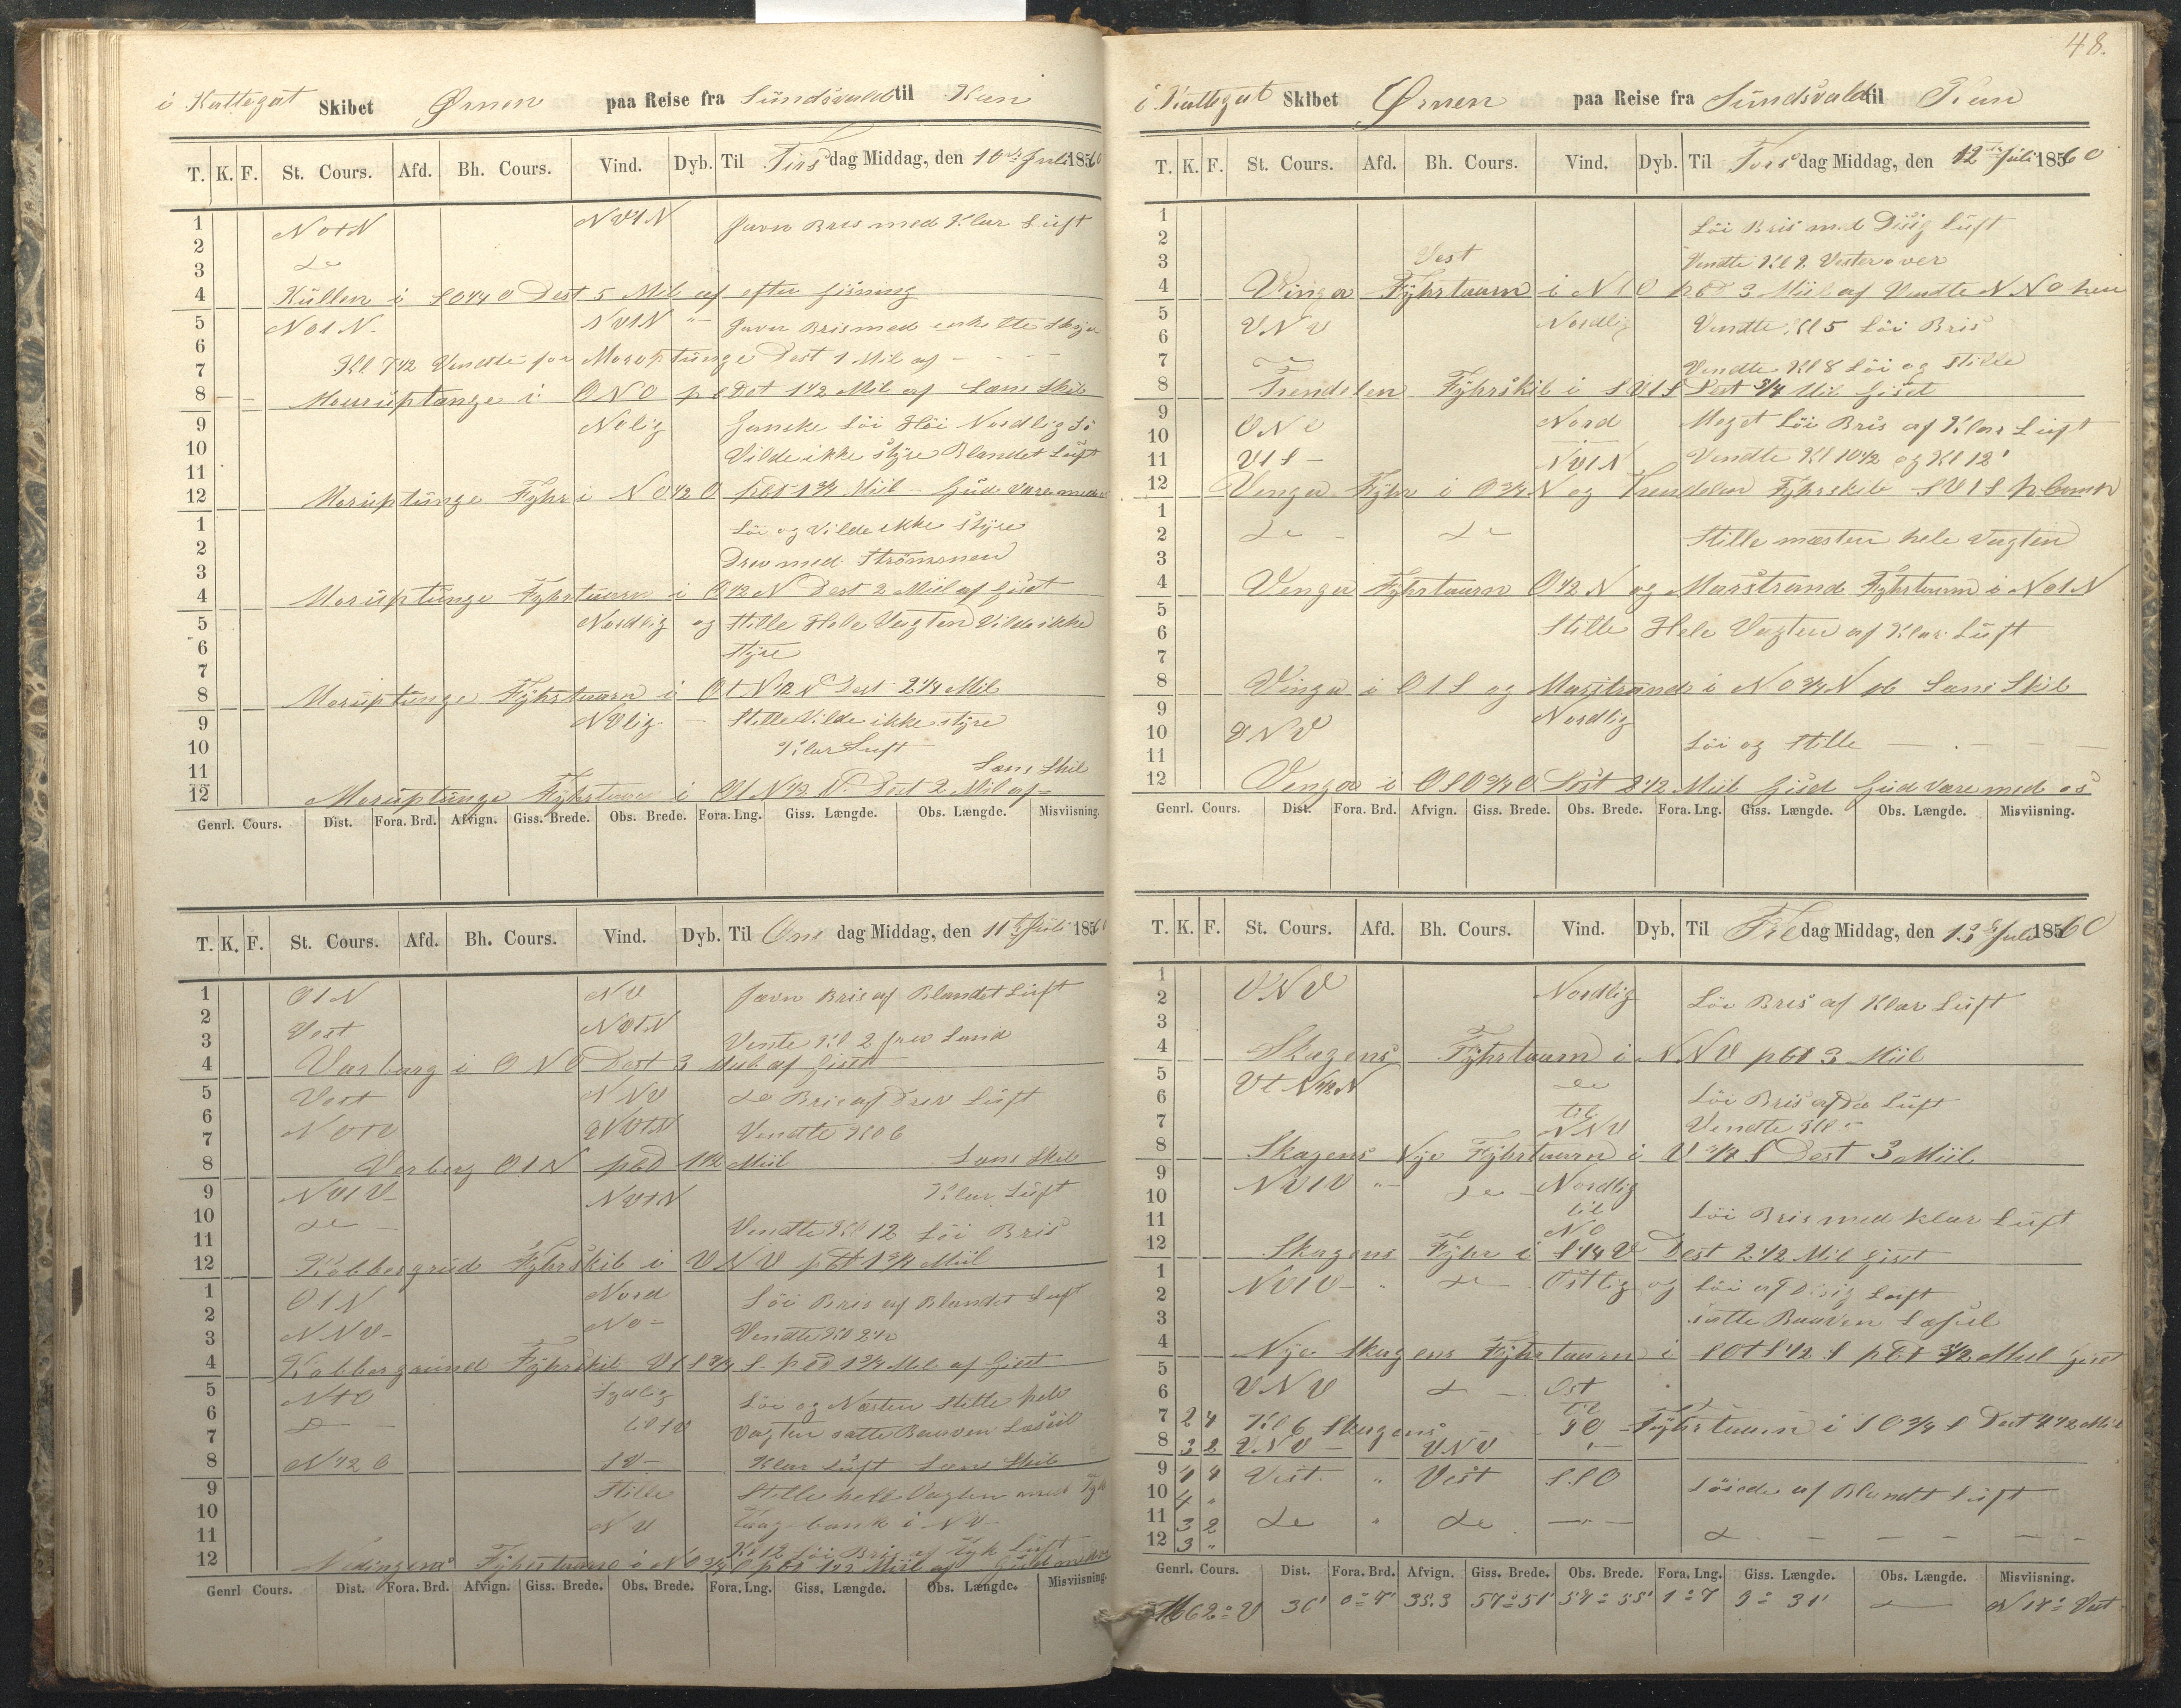 i Kattegat Skibet Ørnen paa Reise fra Sundsvald til Kan
T. K. F. St. Cours. Afd. Bh. Cours. Vind. Dyb. Til Tirsdag Middag, den 10de Juli 1860
1 NOtN NVtN Javn Bris med Klar Luft
2
3 do
4 Kullen i SO1/4O Dest 5 Mil af efter gisning
5 NOtN NVtN Javn Bris med enkelte Skyer
6
7 Kl 7 1/2 Vendte for Moruptunge Dest 1 Mil af
8 Mouruptange i ONO pr Dst 1 1/2 Mil af Lens Skib
9 Nolig Ganske Löi Höi Nordlig Sö
10 Vilde ikke styre Blandet Luft
11
12 Moruptunge Fyhr i NO1/2O pbt 1 3/4 Miil Gud være med os
1 Löi og Vilde ikke styre
2 Drev med Strömmen
3
4 Moruptunge Fyhrtaarn i O1/2N Dest 2 Miil af Gist
5 Nordlig og Stille Hele Vagten Vilde ikke
6 styre
7
8 Moruptunge Fyhrtaarn i OtN1/2N Dest 2 1/4 Mil
9 NVlig Stille Vilde ikke styre
10 Klar Luft
11 Lens Skib
12 Moruptunge Fyhrtaarn i OtN1/2N Dest 2 Mil af
Genrl. Cours. Dist. Fora. Brd. Afvign. Giss. Brede. Obs. Brede. Fora. Lng. Giss. Længde. Obs. Længde. Misviisning.
T. K. F. St. Cours. Afd. Bh. Cours. Vind. Dyb. Til Ons dag Middag, den 11te Juli 1860
1 OtN NV Javn Bris af Blandet Luft
2 Vest NVtN
3 Vente Kl 2 fra Land
4 Varbarg i ONO Dest 3 Miil af Gist
5 Vest NNV do Bris af Luft
6 NOtO NVtN Vendte Kl 6
7
8 Varberg OtN pbd 1 1/2 Miil Lens Skib
9 NVtV NVtN Klar Luft
10 do
11 Vendte Kl 12 Löi Bris
12 Kobbergrund Fyhrskib i VNV pbt 1 3/4 Miil
1 OtN Nord Löi Bris af Blandet Luft
2 NNV No
3 Vendte Kl 2 1/2
4 Kobbergrund Fyhrskib VtS 3/4 S. pbd 1 3/4 Mil af Gist
5 NtO Sydlig Löi og Næsten Stille hele
6 do til SV Vagten satte Bauven Læseil
7
8 N1/2O SV Klar Luft Lens Skib
9 Stille Stille hele Vagten med Tyk
10 NV Taagebank i NV
11 Kl 12 Löi Bris af Tyk Luft
12 Nidingens Fyhrtaarn i NO 3/4 O pbt 1 1/2 Miil af Gud med os
Genrl Cours. Dist. Fora. Brd. Afvign. Giss. Brede. Obs. Brede. Fora. Lng. Giss. Længde. Obs. Længde. Misviisning.
48.
i Kattegat Skibet Ørnen paa Reise fra Sundsvald til Kan
T. K. F. St. Cours. Afd. Bh. Cours. Vind. Dyb. Til Tors dag Middag, den 12de Juli 1860
1 Löi Bris med Disig Luft
2
3 Vest Vendte Kl 2 Vesterover
4 Vinga Fyhrtaarn i NtO pbt 3 Miil af Vendte NNO hen
5 VNV Nordlig Vendte Kl 5 Löi Bris
6
7 Vendte Kl 8 Löi og Stille
8 Trendelen Fyhrskib i SVtS Dest 3/4 Mil Gist
9 ONO Nord Meget Löi Bris af Klar Luft
10
11 VtS NVtN Vendte Kl 10 1/2 og Kl 12
12 Venga Fyhr i O3/4N og Trendelen Fyhrskib SVtS p Comp
1
2 do do Stille mæsten hele Vagten
3
4 Venga Fyhrtaarn O1/2N og Marstrand Fyhrtaarn i NOtN
5
6 Stille Hele Vagten af Klar Luft
7
8 Vinga i OtS og Marstrand i NO3/4N pb Lens Skib
9 VNV Nordlig
10 Löi og Stille
11
12 Vengoe i OSO3/4O Dest 2 1/2 Miil Gist Gud være med os
Genrl. Cours. Dist. Fora. Brd. Afvign. Giss. Brede. Obs. Brede. Fora. Lng. Giss. Længde. Obs. Længde. Misviisning.
T. K. F. St. Cours. Afd. Bh. Cours. Vind. Dyb. Til Fre dag Middag, den 13de Juli 1860
1 VNV Nordlig Löi Bris af Klar Luft
2
3
4 Skagens Fyhrtaarn i NNV pbt 3 Miil
5 VtN1/2N do Löi Bris af do Luft
6 til
7 NNV Vendte Kl 5
8 Skagens Nye Fyhrtaarn i V1/2S Dest 3 Miil
9 NVtV do Nordlig
10 til Löi Bris med klar Luft
11 NO
12 Skagens Fyhr i S1/4V Dest 2 1/2 Mil Gist
1 NVtV do Östlig og Löi af Disig Luft
2
3 satte Bauven Læseil
4 Nye Skagens Fyhrtaarn i SOtS1/2S pbt 3 1/2 Miil Gist
5
6 VNV do Ost
7 2 4 Kl 6 Skagens til SO Fyhrtaarn i SO3/4S Dest 4 1/2 Mil
8 3 2 VNV VNV
9 4 4 Vest. " Vest SSO Löiede af Blandt Luft
10 4 "
11 3 2 do " do
12 3 " do
Genrl. Cours. Dist. Fora. Brd. Afvign. Giss. Brede. Obs. Brede. Fora. Lng. Giss. Længde. Obs. Længde. Misviisning.
N62°V 36' 0°7' 35.3 57°51' 57°55' 1°7 9°31' N17° Vest